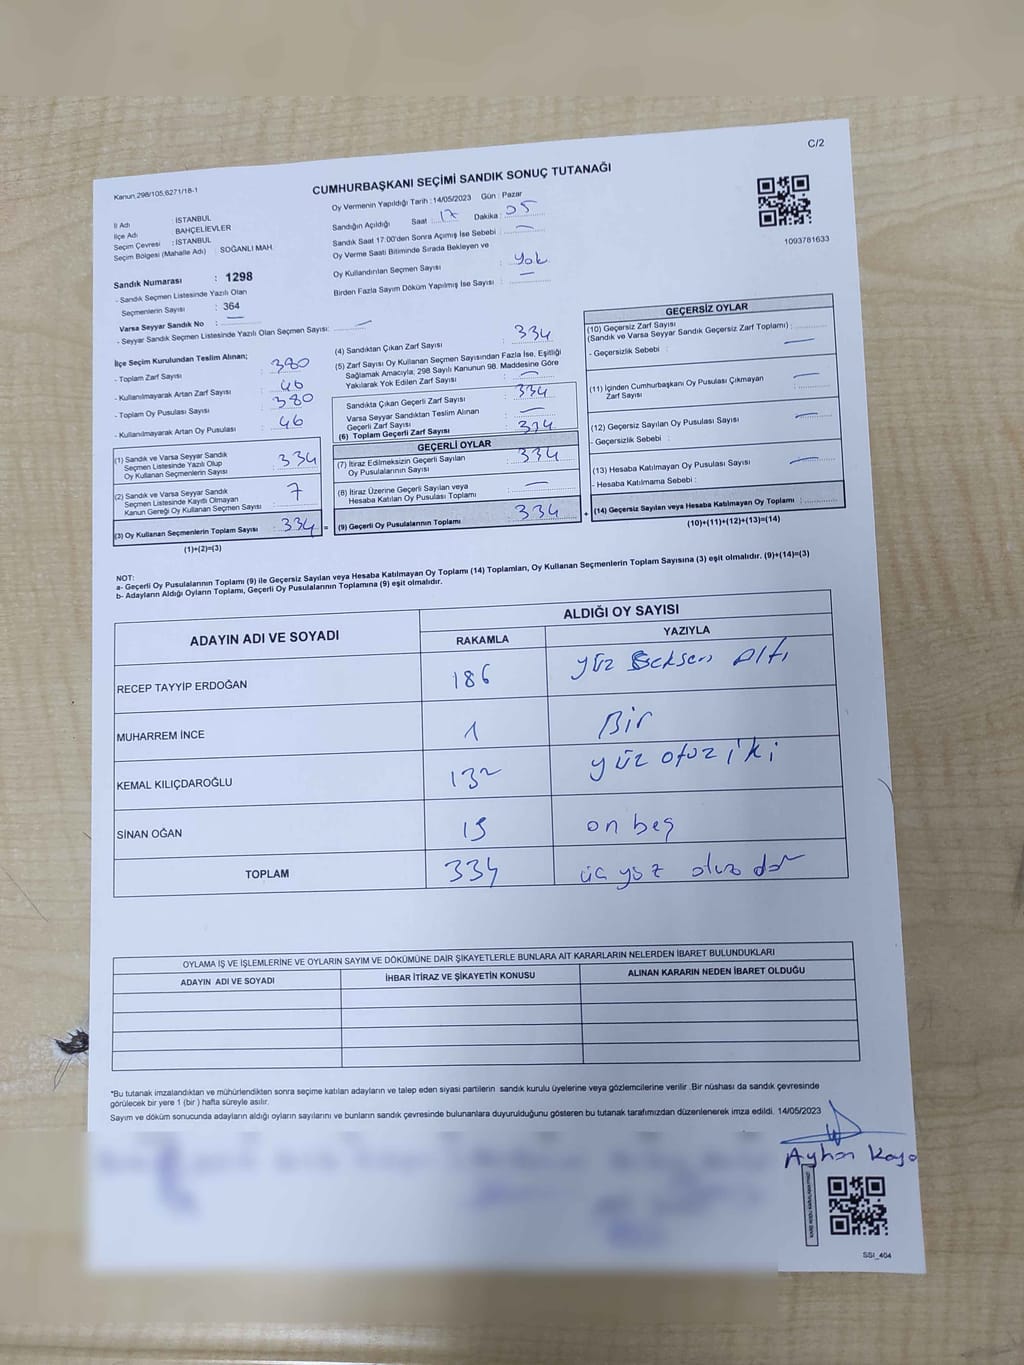 C/2
Kanun.298/105,6271/18-1
CUMHURBAŞKANI SEÇİMİ SANDIK SONUÇ TUTANAĞI
İl Adı : İSTANBUL
İlçe Adı : BAHÇELİEVLER
Seçim Çevresi : İSTANBUL
Seçim Bölgesi (Mahalle Adı) : SOĞANLI MAH.
Sandık Numarası : 1298
- Sandık Seçmen Listesinde Yazılı Olan
Seçmenlerin Sayısı : 364
Varsa Seyyar Sandık No : —
- Seyyar Sandık Seçmen Listesinde Yazılı Olan Seçmen Sayısı: —
Oy Vermenin Yapıldığı Tarih : 14/05/2023 Gün : Pazar
Sandığın Açıldığı Saat : 17 Dakika : 05
Sandık Saat 17:00'den Sonra Açımış İse Sebebi : —
Oy Verme Saati Bitiminde Sırada Bekleyen ve
Oy Kullandırılan Seçmen Sayısı : Yok
Birden Fazla Sayım Döküm Yapılmış İse Sayısı : —
1093781633
İlçe Seçim Kurulundan Teslim Alınan;
- Toplam Zarf Sayısı : 380
- Kullanılmayarak Artan Zarf Sayısı : 46
- Toplam Oy Pusulası Sayısı : 380
- Kullanılmayarak Artan Oy Pusulası : 46
(1) Sandık ve Varsa Seyyar Sandık
Seçmen Listesinde Yazılı Olup
Oy Kullanan Seçmenlerin Sayısı : 334
(2) Sandık ve Varsa Seyyar Sandık
Seçmen Listesinde Kayıtlı Olmayan
Kanun Gereği Oy Kullanan Seçmen Sayısı : 7
(3) Oy Kullanan Seçmenlerin Toplam Sayısı : 334 =
(1)+(2)=(3)
(4) Sandıktan Çıkan Zarf Sayısı : 334
(5) Zarf Sayısı Oy Kullanan Seçmen Sayısından Fazla İse, Eşitliği
Sağlamak Amacıyla; 298 Sayılı Kanunun 98. Maddesine Göre
Yakılarak Yok Edilen Zarf Sayısı : —
Sandıkta Çıkan Geçerli Zarf Sayısı : 334
Varsa Seyyar Sandıktan Teslim Alınan
Geçerli Zarf Sayısı : —
(6) Toplam Geçerli Zarf Sayısı : 334
GEÇERLİ OYLAR
(7) İtiraz Edilmeksizin Geçerli Sayılan
Oy Pusulalarının Sayısı : 334
(8) İtiraz Üzerine Geçerli Sayılan veya
Hesaba Katılan Oy Pusulası Toplamı : —
(9) Geçerli Oy Pusulalarının Toplamı : 334 +
GEÇERSİZ OYLAR
(10) Geçersiz Zarf Sayısı
(Sandık ve Varsa Seyyar Sandık Geçersiz Zarf Toplamı) : —
- Geçersizlik Sebebi :
(11) İçinden Cumhurbaşkanı Oy Pusulası Çıkmayan
Zarf Sayısı : —
(12) Geçersiz Sayılan Oy Pusulası Sayısı : —
- Geçersizlik Sebebi :
(13) Hesaba Katılmayan Oy Pusulası Sayısı : —
- Hesaba Katılmama Sebebi :
(14) Geçersiz Sayılan veya Hesaba Katılmayan Oy Toplamı :
(10)+(11)+(12)+(13)=(14)
NOT:
a- Geçerli Oy Pusulalarının Toplamı (9) ile Geçersiz Sayılan veya Hesaba Katılmayan Oy Toplamı (14) Toplamları, Oy Kullanan Seçmenlerin Toplam Sayısına (3) eşit olmalıdır. (9)+(14)=(3)
b- Adayların Aldığı Oyların Toplamı, Geçerli Oy Pusulalarının Toplamına (9) eşit olmalıdır.
ADAYIN ADI VE SOYADI ALDIĞI OY SAYISI
RAKAMLA YAZIYLA
RECEP TAYYİP ERDOĞAN 186 yüz Seksen Altı
MUHARREM İNCE 1 Bir
KEMAL KILIÇDAROĞLU 132 yüz otuz iki
SİNAN OĞAN 15 on beş
TOPLAM 334 üç yüz otuz dört
OYLAMA İŞ VE İŞLEMLERİNE VE OYLARIN SAYIM VE DÖKÜMÜNE DAİR ŞİKAYETLERLE BUNLARA AİT KARARLARIN NELERDEN İBARET BULUNDUKLARI
ADAYIN ADI VE SOYADI İHBAR İTİRAZ VE ŞİKAYETİN KONUSU ALINAN KARARIN NEDEN İBARET OLDUĞU
*Bu tutanak imzalandıktan ve mühürlendikten sonra seçime katılan adayların ve talep eden siyasi partilerin sandık kurulu üyelerine veya gözlemcilerine verilir .Bir nüshası da sandık çevresinde
görülecek bir yere 1 (bir ) hafta süreyle asılır.
Sayım ve döküm sonucunda adayların aldığı oyların sayılarını ve bunların sandık çevresinde bulunanlara duyurulduğunu gösteren bu tutanak tarafımızdan düzenlenerek imza edildi. 14/05/2023
Ayhan Kaya
SSI_404